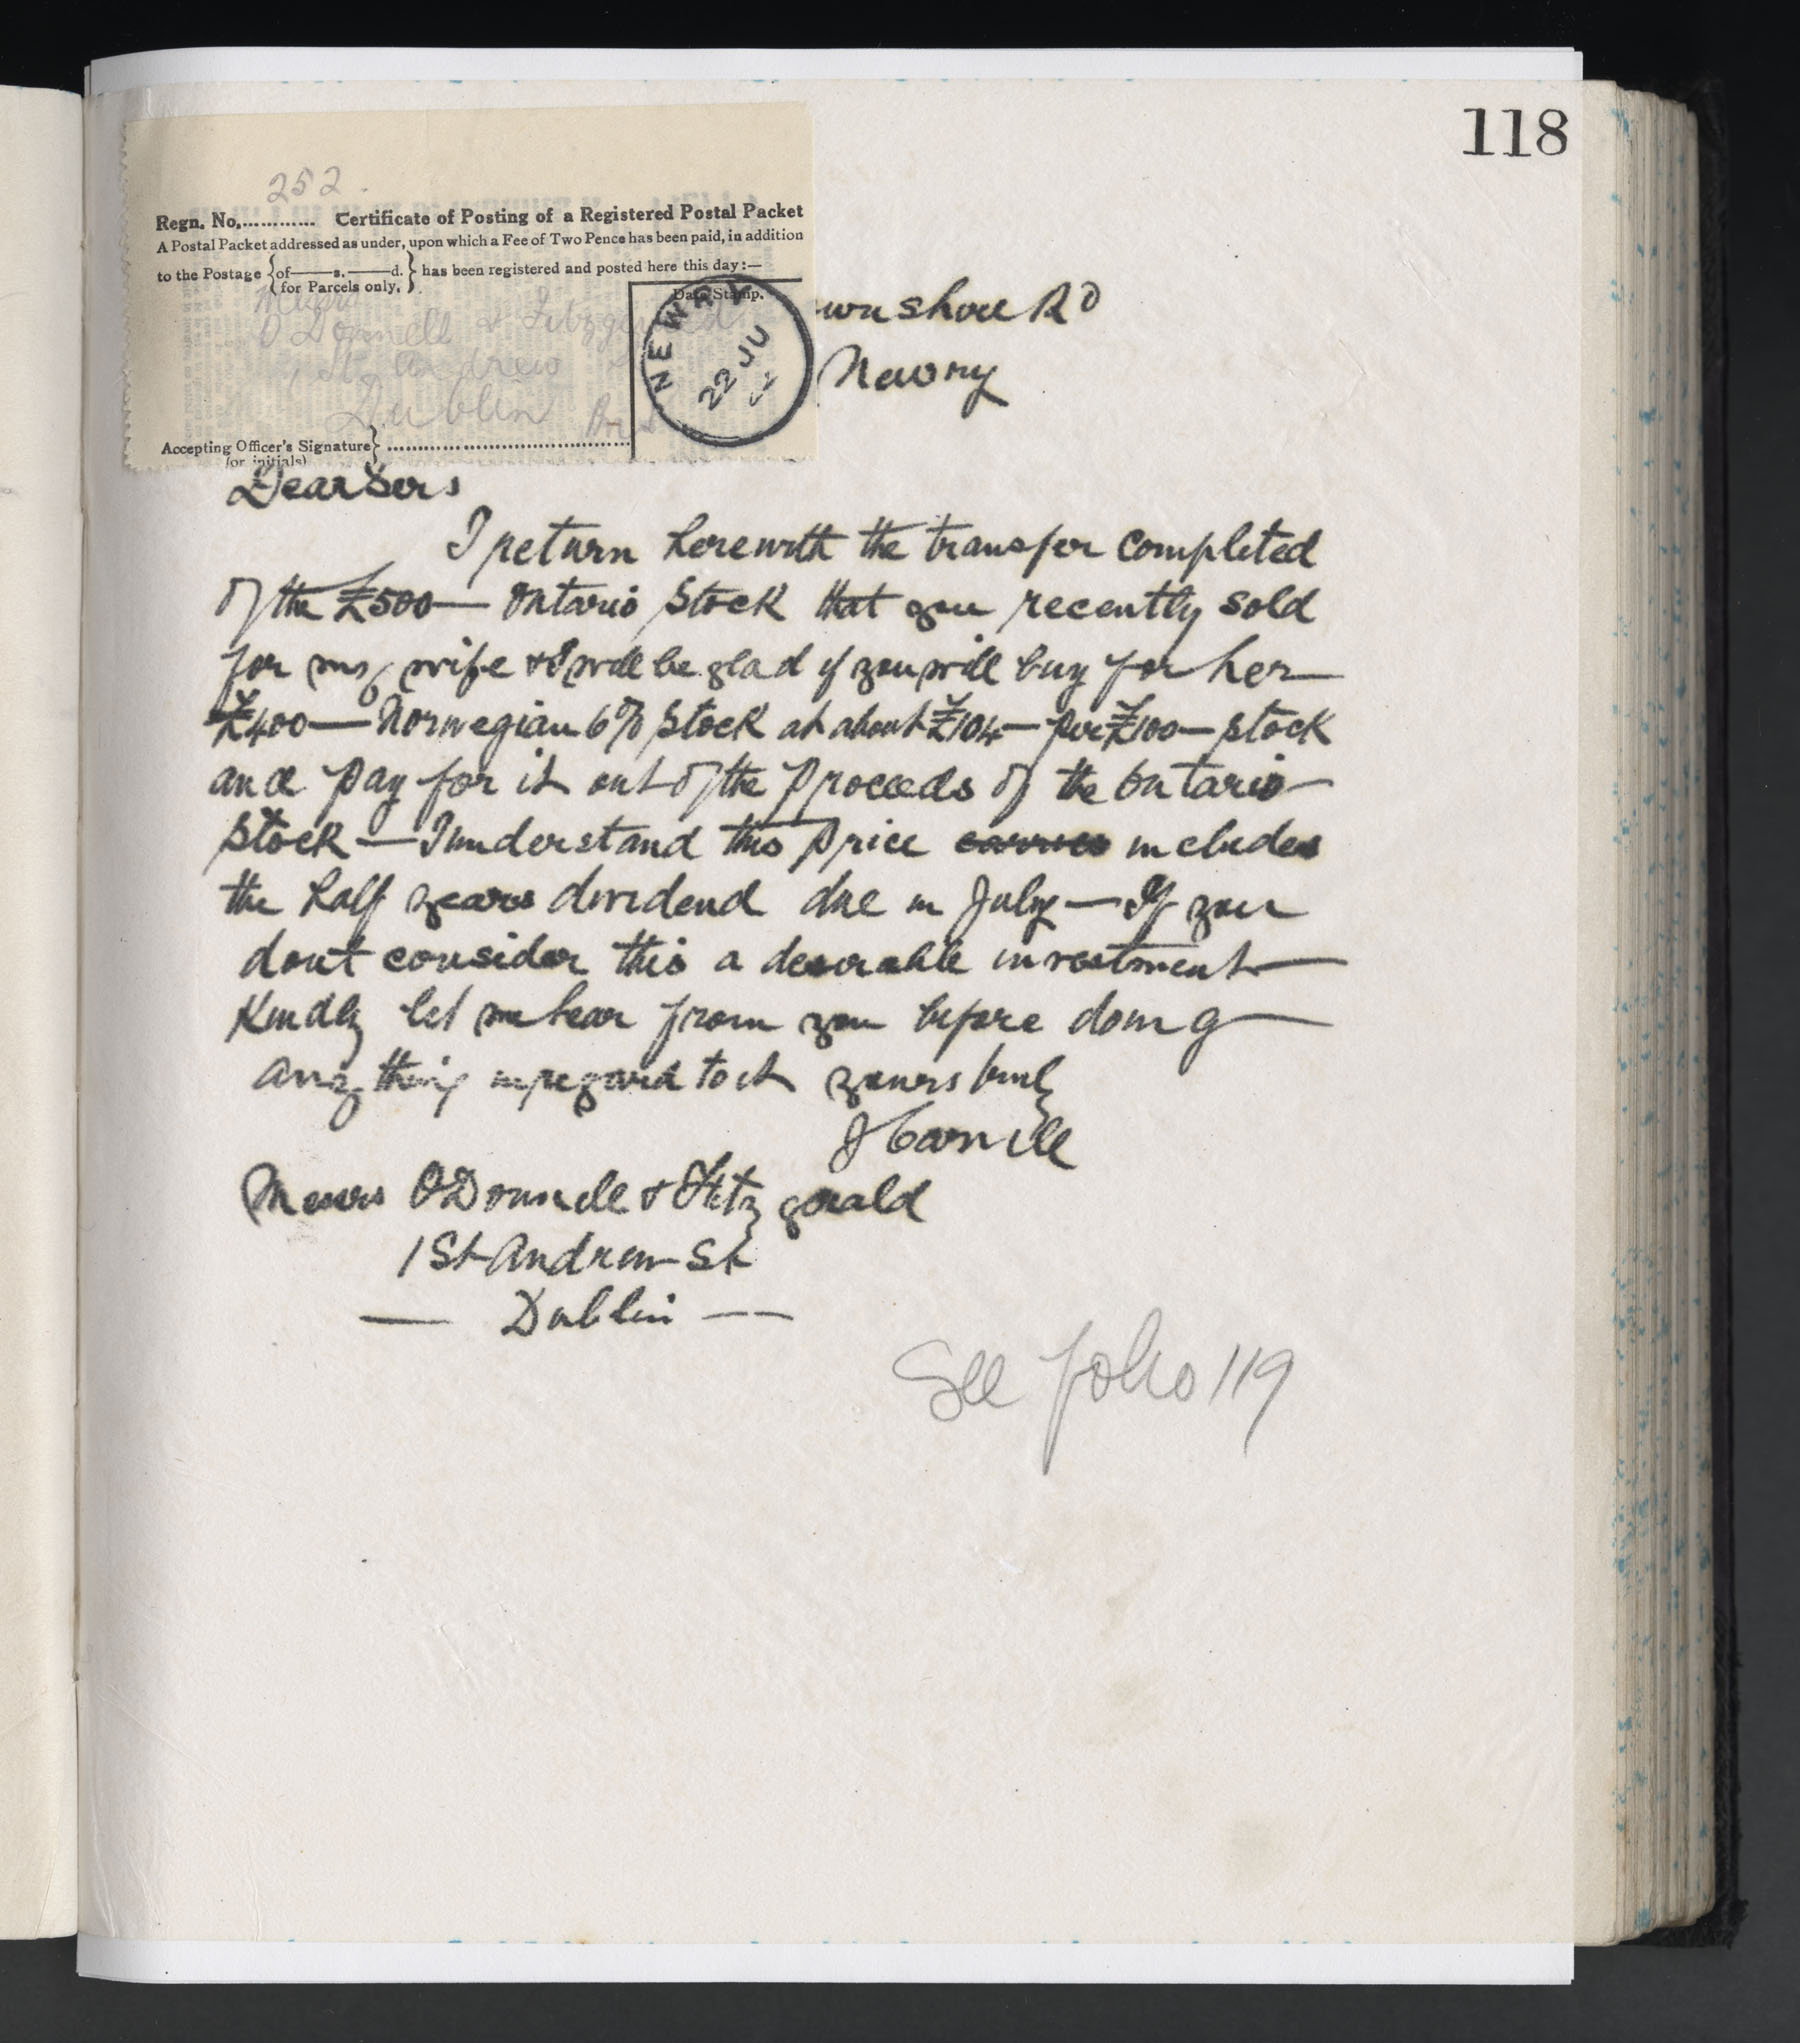 118
252.
Regn. No............. Certificate of Posting of a Registered Postal Packet
A Postal Packet addressed as under, upon which a Fee of Two Pence has been paid, in addition
to the Postage {of——s.——d. for Parcels only.} has been registered and posted here this day:—
Date Stamp.
Messrs
O Donnell & Fitzgerald
1 St. Andrew
Dublin
NEWRY
22 JU
Accepting Officer's Signature} ..........................................
(or initials)
wnshore Rd
Newry
Dear Sirs
I return herewith the transfer completed
of the £500— Ontario Stock that you recently sold
for my wife & I will be glad if you will buy for her—
£400— Norwegian 6% Stock at about £104— per £100— stock
and pay for it out of the proceeds of the Ontario—
Stock — I understand this price carries includes
the half years dividend due in July — If you
dont consider this a desirable investment—
Kindly let me hear from you before doing—
any thing in regard to it yours truly
Messrs O'Donnell & Fitzgerald
1 St Andrew St
— Dublin —
See folio 119